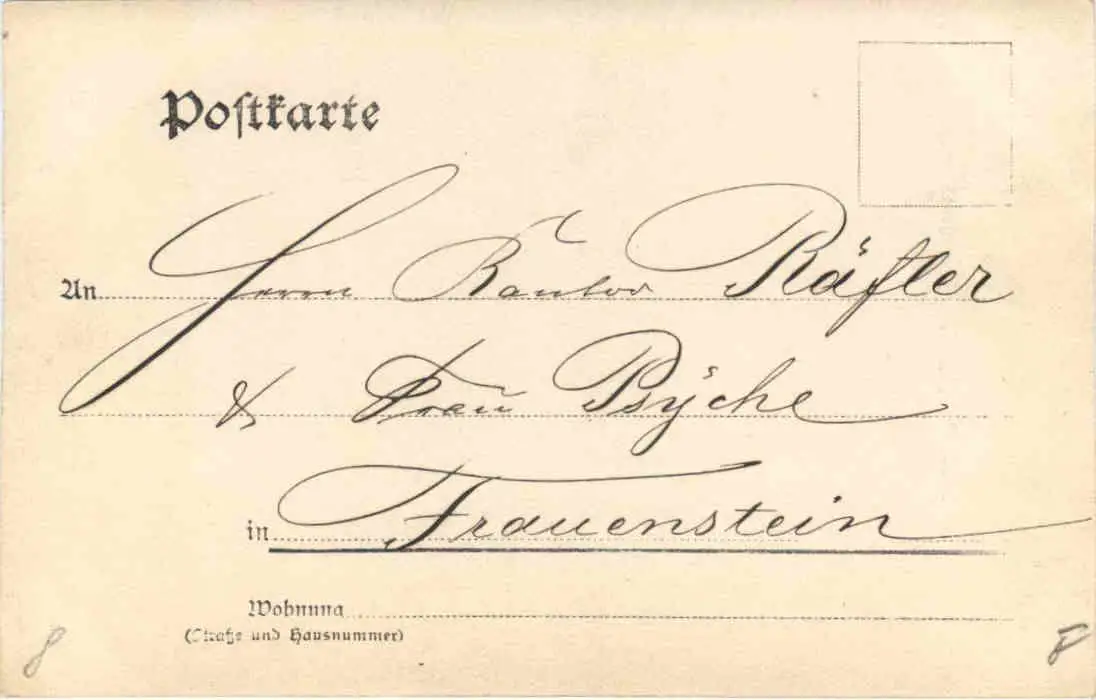 Postkarte
An Herrn Kantor Räfler
& Frau Psÿche
in Frauenstein
Wohnung
(Straße und Hausnummer)
8